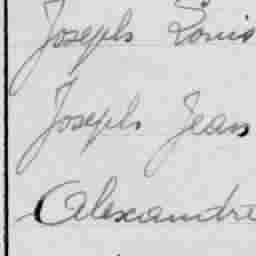 Joseph Louis
Joseph Jean
Alexandre